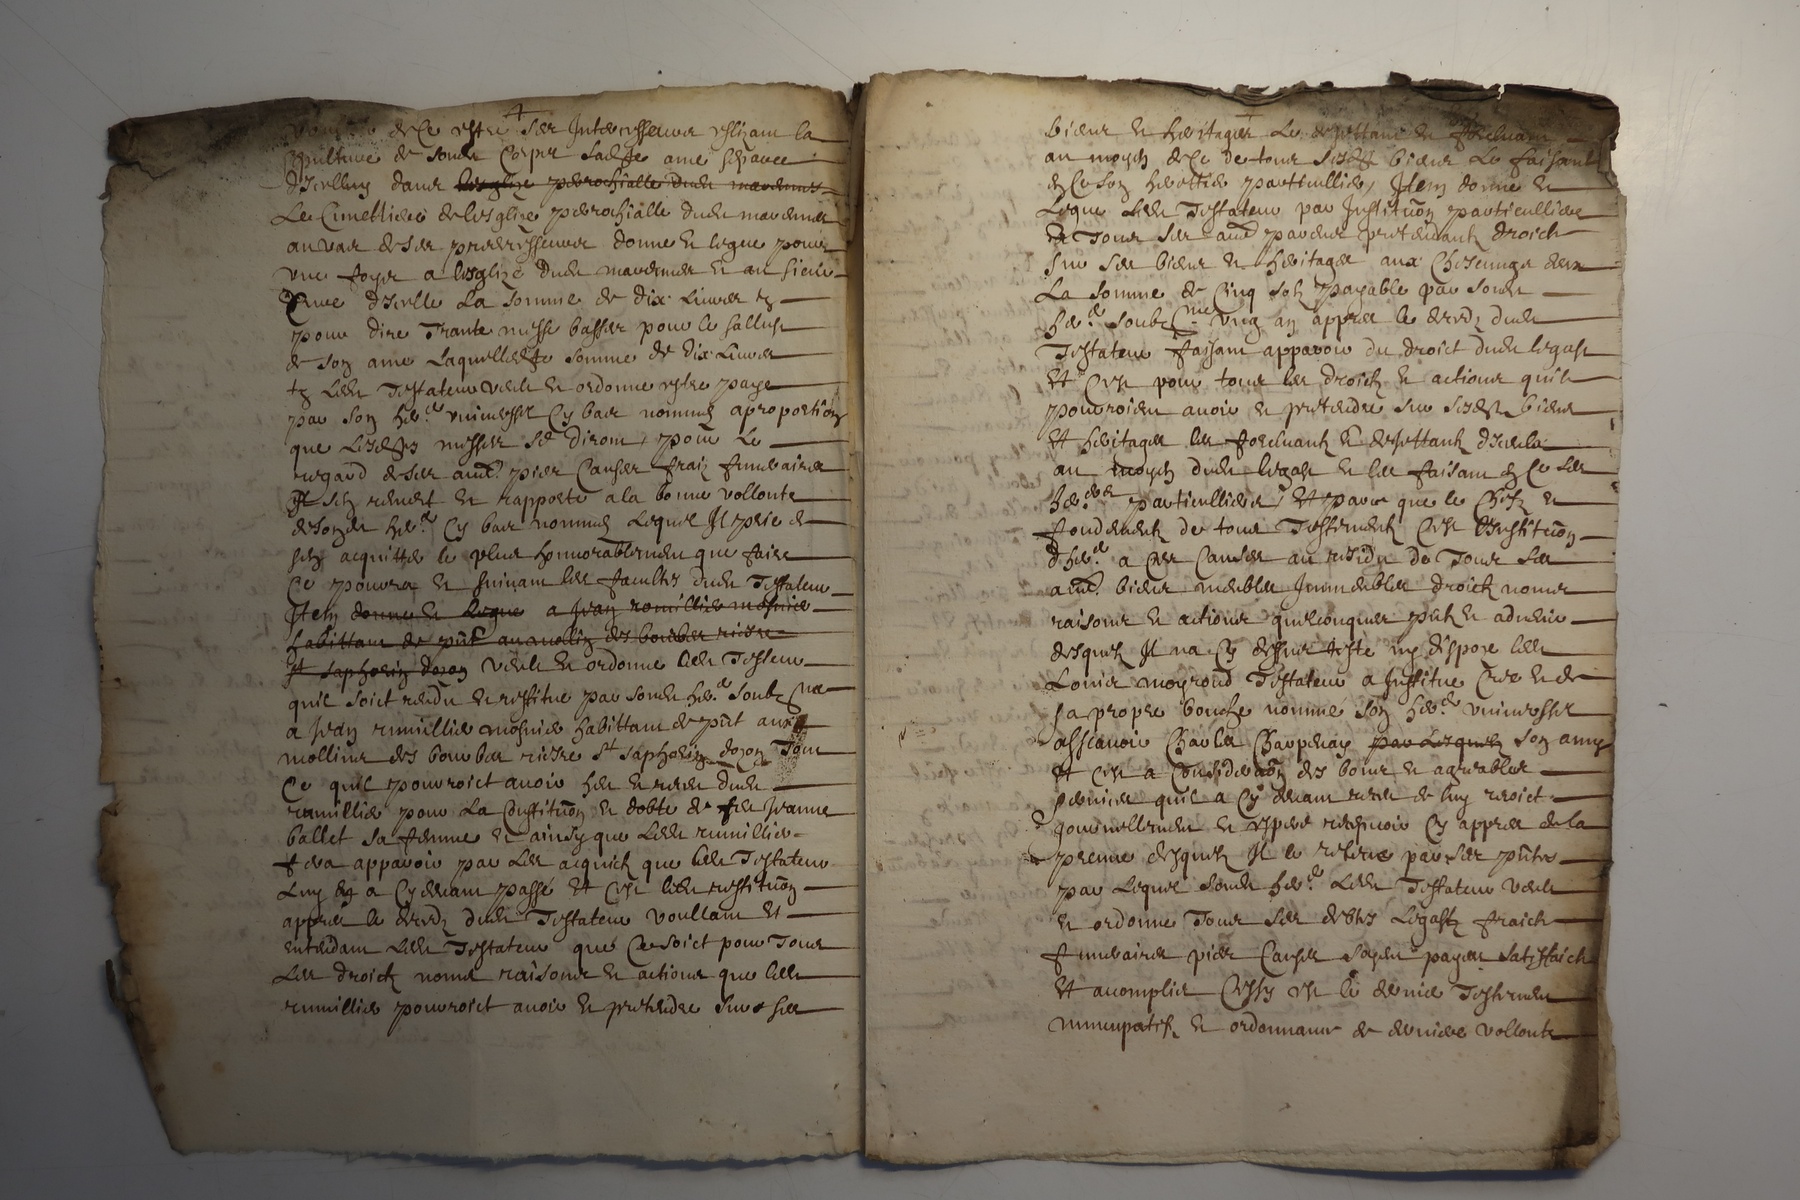 de ce estre ses Intercesseurs eslizant la
sepulture de sondt Corps ladte ame separee
d'Icelluy dans lesglize perrochialle dudt
Le Cimettiere de lesglize perrochialle dudt
au vas de ses predecesseurs donne et legue pour
une foys a lesglize dudt et au sieur
Cure d'Icelle La somme de dix Livres tz
pour dire Trante messe basses pour le sallust
de son ame Laquelledte somme de dix Livres
tz Ledt Testateur veult et ordonne estre paye
par son her. universel Cy bas nommé a proportion
que Lesdtes messes se diront, pour Le
regard de ses aues pies Causes fraiz funeraires
Il sen remect et rapporte a la bonne vollonte
de sondt her. Cy bas nommé Lequel Il prie de
sen acquitter le plus honnorablement que faire
Ce pourra et suivant les facultes dudt Testateur
Item donne et legue a Jean rumillier mosnier
habittant de pnt au mollin des bombes riere
St saphorin dozon veult et ordonne ledt Testateur
quil soict rendu et restitue par sondt her. soubz
a Jean rumillier mosnier habittant de pnt aux
mollins des bombes riere St saphorin dozon Tout
Ce quil pourroict avoir heu et receu dudt
rumillier pour La Constituon et debte de feu Jeanne
ballet sa femme et ainsy que Ledt rumillier
fera apparoir par Les acquictz que ledt Testateur
Luy en a Cy devant passé Et C'est ledt restituon
appres le deces dudt Testateur voullant Et
entendant Ledt Testateur que Ce soict pour Tous
Les droictz noms raisons et actions que ledt
rumillier pourroict avoir et pretendre sur ses
biens et heritages Le dejettant et forcluant
au moyen de Ce de tous sesdts biens Le faisant
en Ce son heritier particullier, Item donne et
Legue Ledt Testateur par Institution particulliere
Et Tous ses aues parens pretendantz droict
sur ses biens et heritages aux Chescungs deux
La somme de Cinq solz payable par sondt
her. soubz ung an appres le deces dudt
Testateur faisant apparoir du droict dudt legast
Et C'est pour tous les droictz et actions quilz
pourroient avoir et pretendre sur sesdts biens
Et heritages les forcluant et dejettant d'Icelle
au moyen dudt legast et les faisant en Ce ses
her. particulliers, Et parce que le Chefz et
fondement de tous Testement C'est l'Instituon
d'her. a Ces Causes au residu de Tous ses
aues biens meubles Immeubles droictz noms
raisons et actions quelconques pntz et advenir
desquelz Il na Cy dessus teste ny dispose ledt
Louis moyroud Testateur a Institue Cree et de
sa propre bouche nommé son her. universel
assavoir Charles Charpenay par Lesquelz son amy
Et C'est a Consideraon des bons et agreables
services quil a Cy devant receu de luy recoict
journellement et espere recepvoir Cy appres de la
preuve desquelz Il le releve par Ses pntes
par Lequel sondt her. Ledt Testateur veult
et ordonne Tous ses debtes Legastz fraict
funeraires pies Causes soyent payes satisfaict
Et accomplies Cessy est le dernier Testement
nuncupatifz et ordonnance de derniere vollonte